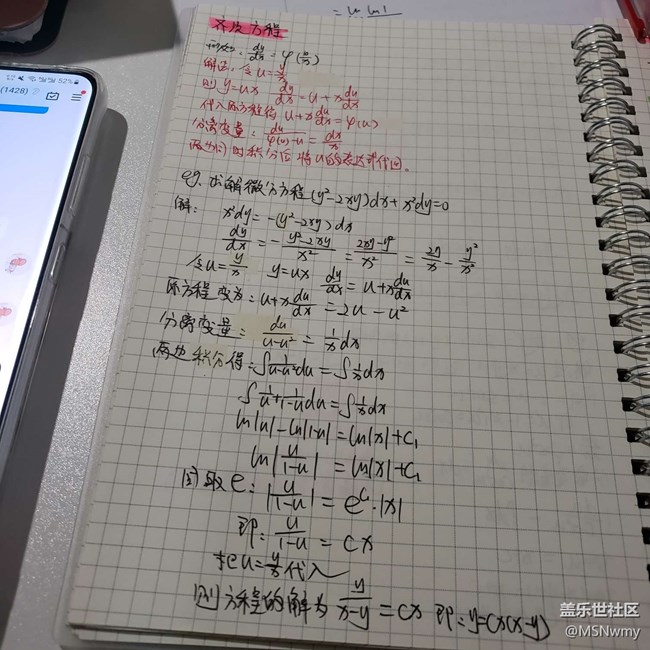 = ln ln|
齐次方程
形如: dy/dx = φ(y/x)
解法: 令u=y/x
则 y=ux dy/dx=u+x du/dx
代入原方程得 u+x du/dx=φ(u)
分离变量: du/(φ(u)-u) = dx/x
两边同时积分后 将u的表达式代回.
eg. 求解微分方程(y²-2xy)dx+x²dy=0
解: x²dy=-(y²-2xy)dx
dy/dx = -(y²-2xy)/x² = (2xy-y²)/x² = 2y/x - y²/x²
令u=y/x y=ux dy/dx=u+x du/dx
原方程变为: u+x du/dx=2u-u²
分离变量: du/(u-u²) = 1/x dx
两边积分得: ∫1/(u-u²)du=∫1/x dx
∫1/u+1/(1-u)du=∫1/x dx
ln|u|-ln|1-u|=ln|x|+C₁
ln|u/(1-u)| =ln|x|+C₁
同取e: |u/(1-u)|=e^C₁·|x|
即: u/(1-u) = Cx
把u=y/x代入
则方程的解为 y/(x-y) = Cx 即: y=Cx(x-y)
(1428)
52%
盖乐世社区
@MSNwmy